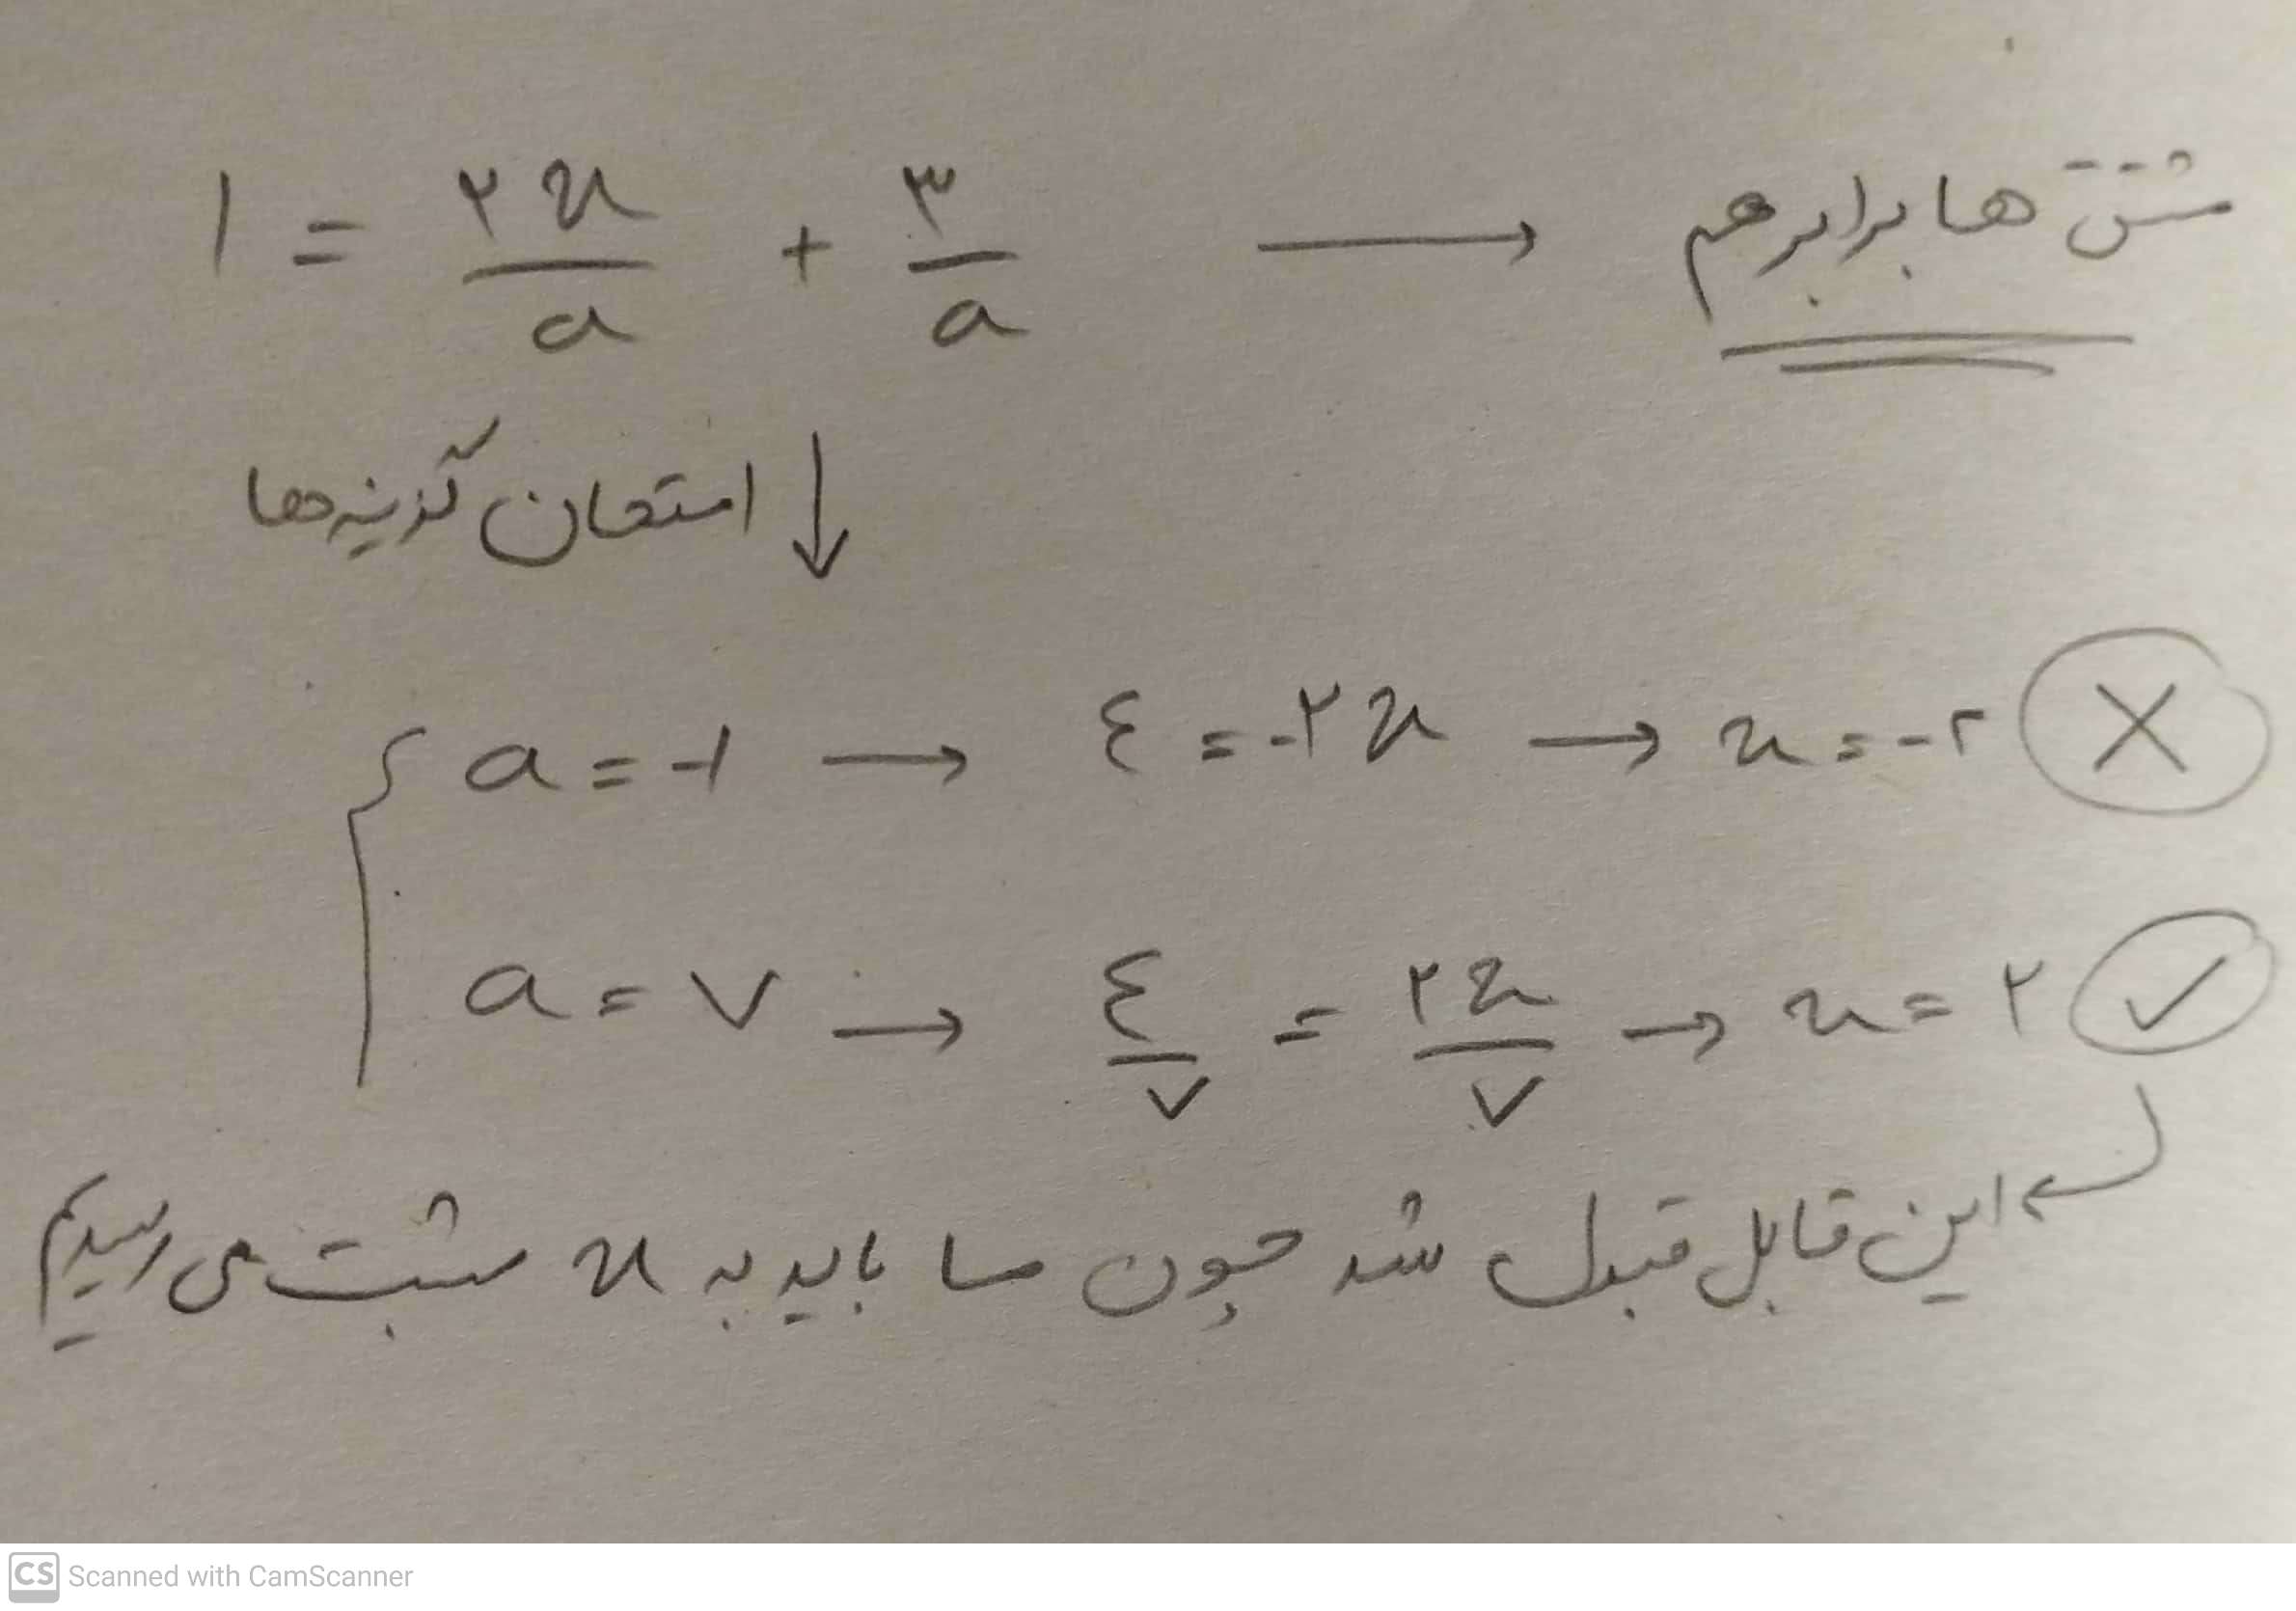 ۱ = ۲x/a + ۳/a → مشتق ها برابر هم
↓ امتحان گزینه ها
{ a = -۱ → ٤ = -۲x → x = -۲ ×
a = ۷ → ٤/۷ = ۲x/۷ → x = ۲ ✓
↳ این قابل قبول شد چون ما باید به x مثبت می رسیدیم
CS Scanned with CamScanner